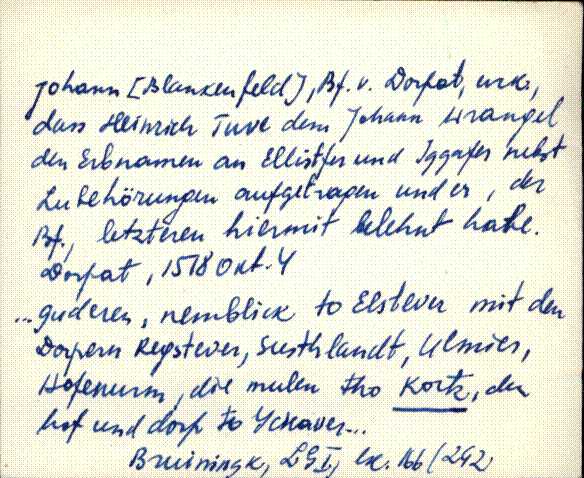 Johann [Blankenfeld], Bf. v. Dorpat, urk.,
dass Heinrich Tuve dem Johann Wrangel
den Erbnamen an Ellistfer und Iggafer nebst
Zubehörungen aufgetragen und er, der
Bf., letzteren hiermit belehnt habe.
Dorpat, 1518 Okt. 4
...guderen, nemblick to Elstever mit den
Dorpern Regstever, Susthlandt, Ulmies,
Hofenurm, die mulen tho Kortz, den
hof und dorp to Yckaver...
Bruiningk, LG I, lk. 166 (242